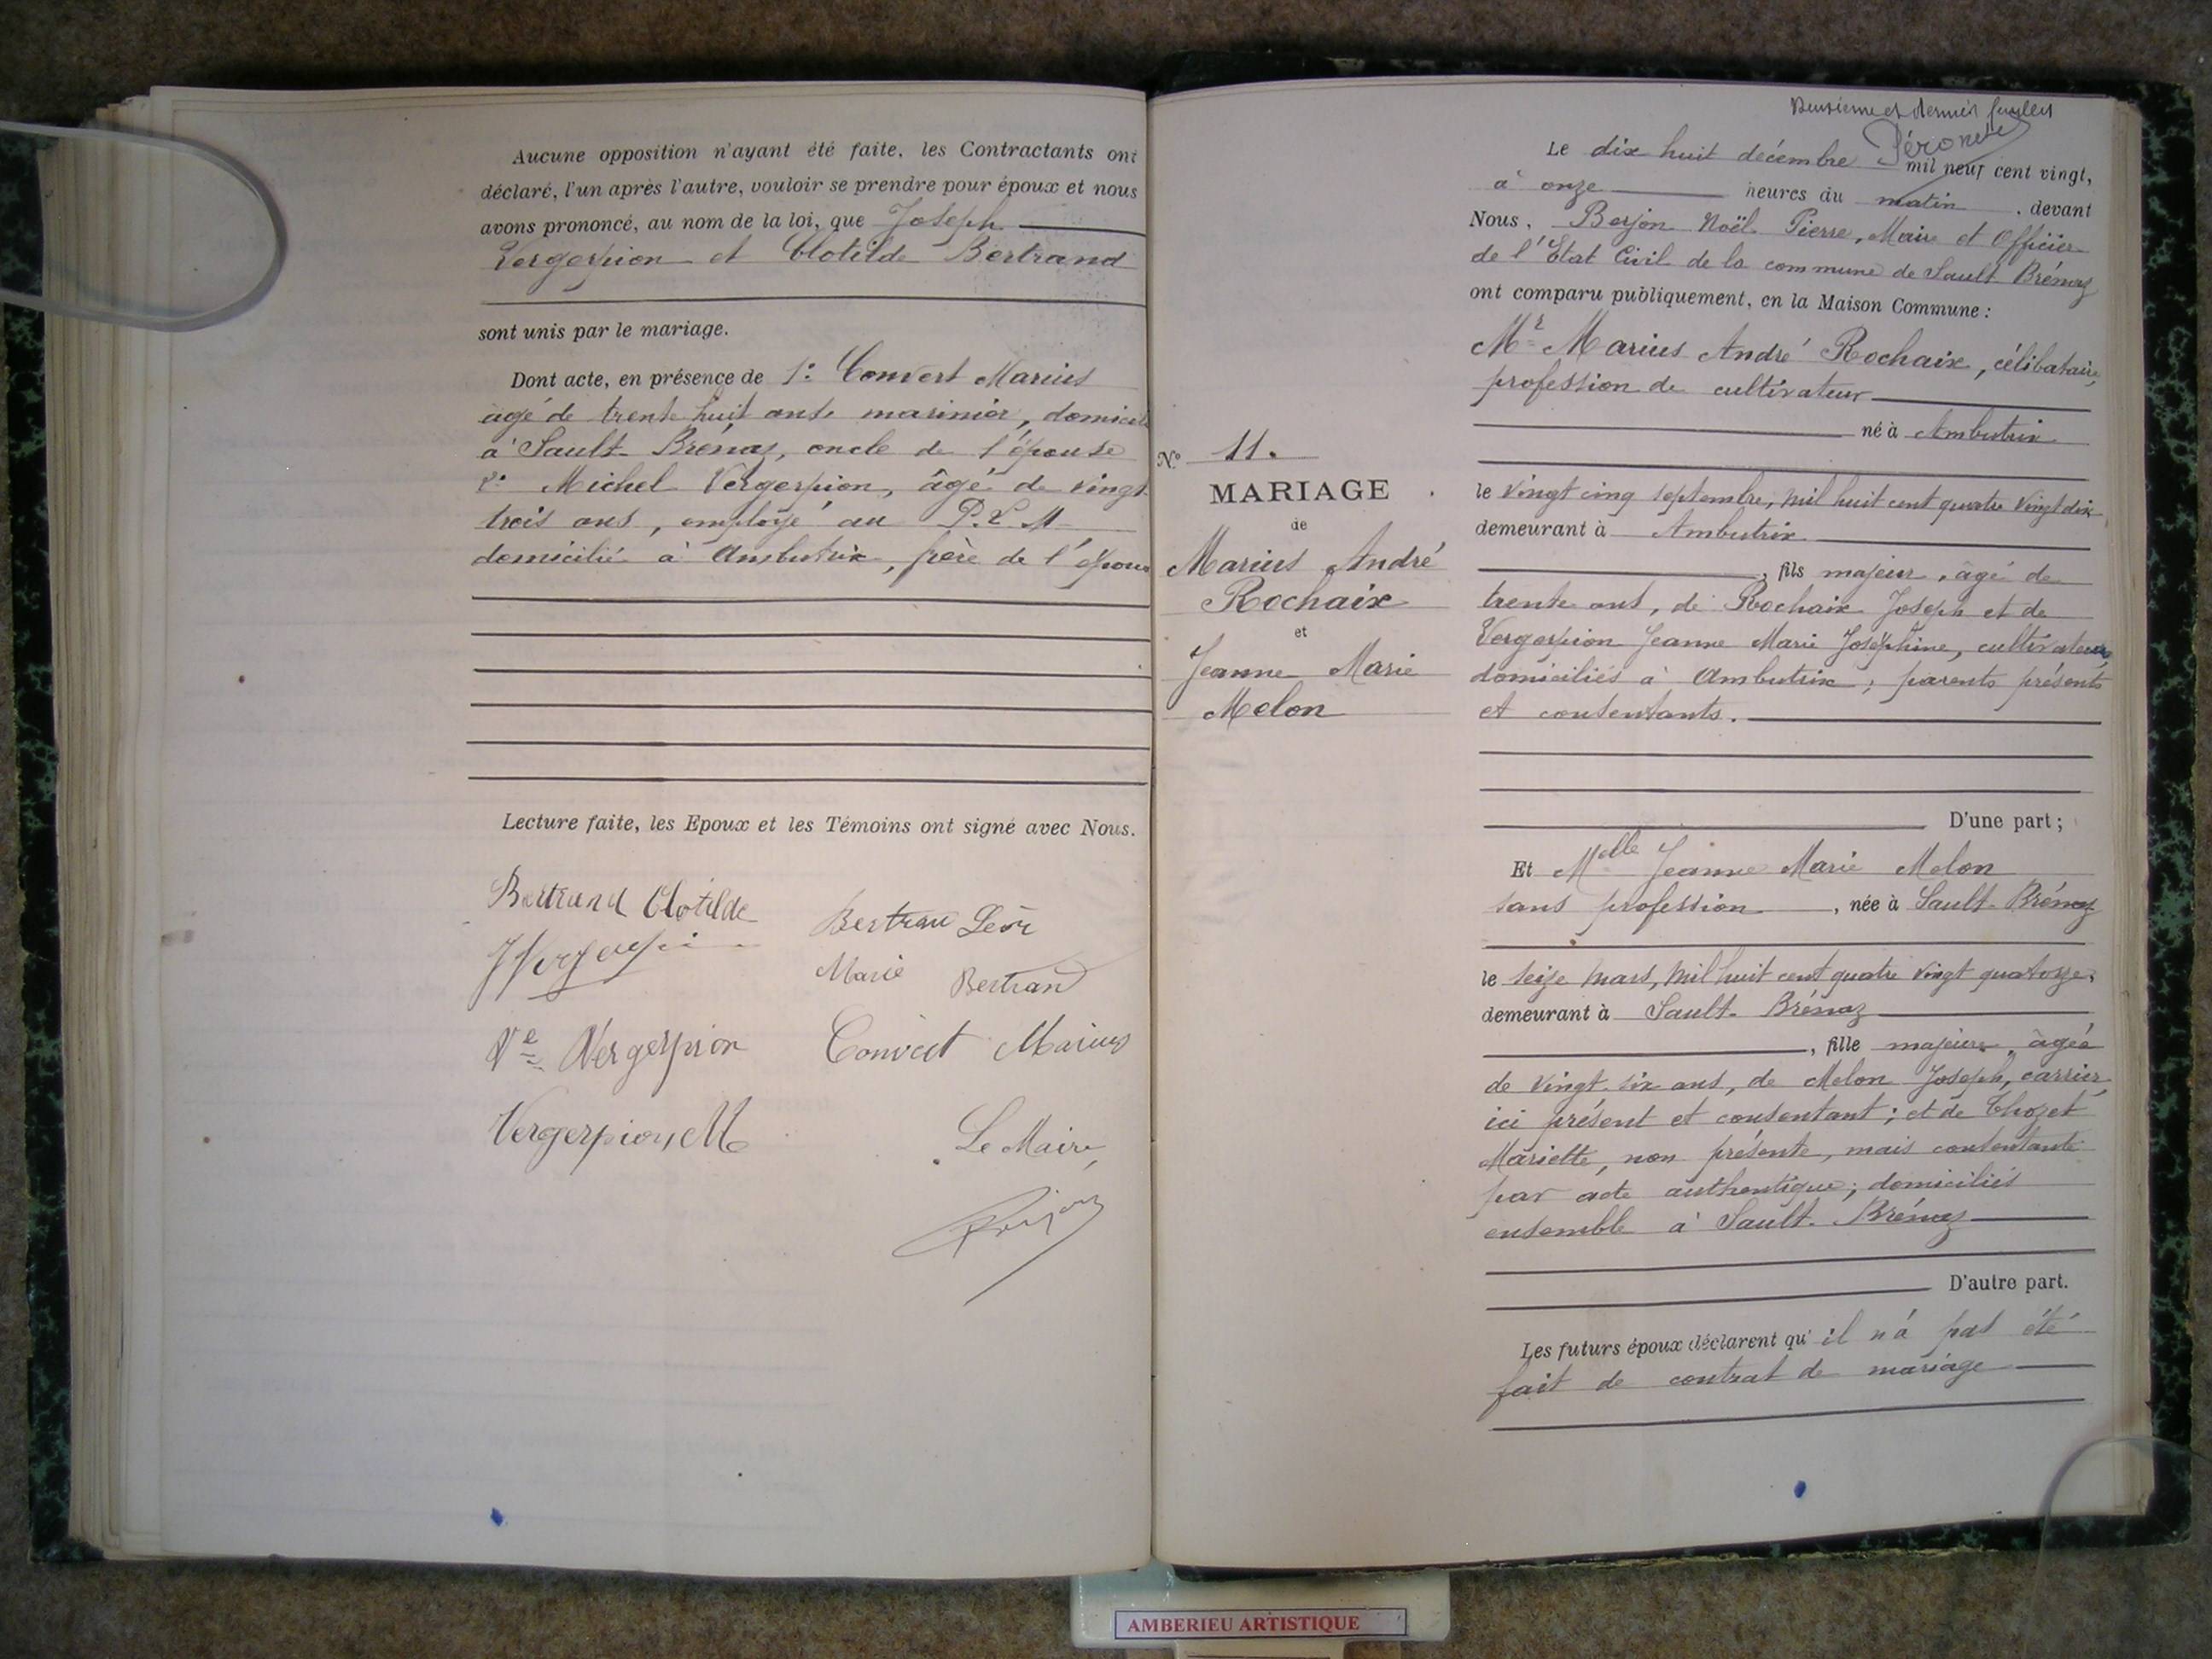 Aucune opposition n'ayant été faite, les Contractants ont
déclaré, l'un après l'autre, vouloir se prendre pour époux et nous
avons prononcé, au nom de la loi, que Joseph
Vergerpion et Clotilde Bertrand
sont unis par le mariage.
Dont acte, en présence de 1º Convert Marius
âgé de trente huit ans, marinier, domicilié
à Sault-Brénaz, oncle de l'épouse
2º Michel Vergerpion, âgé de vingt
trois ans, employé au P.L.M
domicilié à Ambutrix, frère de l'époux
Lecture faite, les Epoux et les Témoins ont signé avec Nous.
Bertrand Clotilde
Bertran Léon
Marie Bertrand
Vve Vergerpion
Convert Marius
Vergerpion M
Le Maire,
Nº 11.
MARIAGE
de
Marius André
Rochaix
et
Jeanne Marie
Melon
Deuxième et dernier feuillet
Le dix huit décembre mil neuf cent vingt,
à onze heures du matin, devant
Nous, Berjon Noël Pierre, Maire et Officier
de l'Etat Civil de la commune de Sault-Brénaz
ont comparu publiquement, en la Maison Commune :
Mr Marius André Rochaix, célibataire,
profession de cultivateur
né à Ambutrix
le vingt cinq septembre, mil huit cent quatre vingt dix
demeurant à Ambutrix
, fils majeur, âgé de
trente ans, de Rochaix Joseph et de
Vergerpion Jeanne Marie Joséphine, cultivateurs
domiciliés à Ambutrix ; parents présents
et consentants.
D'une part ;
Et Melle Jeanne Marie Melon
sans profession, née à Sault-Brénaz
le seize mars, mil huit cent quatre vingt quatorze,
demeurant à Sault-Brénaz
, fille majeure, âgée
de vingt-six ans, de Melon Joseph, carrier,
ici présent et consentant ; et de Thozet
Mariette, non présente, mais consentante
par acte authentique ; domiciliés
ensemble à Sault-Brénaz
D'autre part.
Les futurs époux déclarent qu'il n'a pas été
fait de contrat de mariage
AMBERIEU ARTISTIQUE